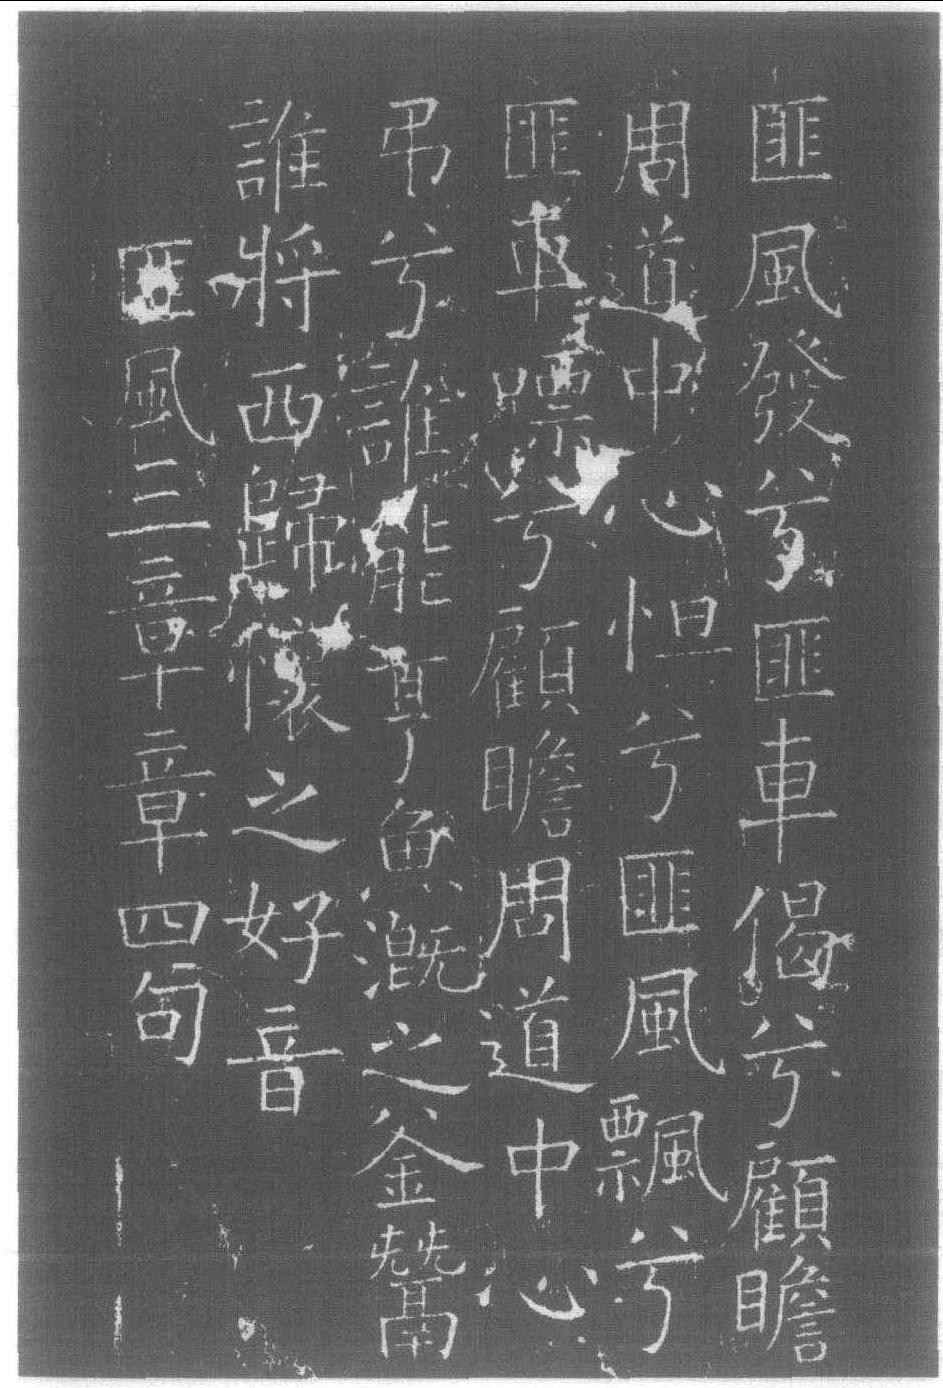 匪風發兮匪車偈兮顧瞻
周道中心怛兮匪風飄兮
匪車嘌兮顧瞻周道中心
弔兮誰能亨魚溉之釜鬵
誰將西歸懷之好音
匪風三章章四句